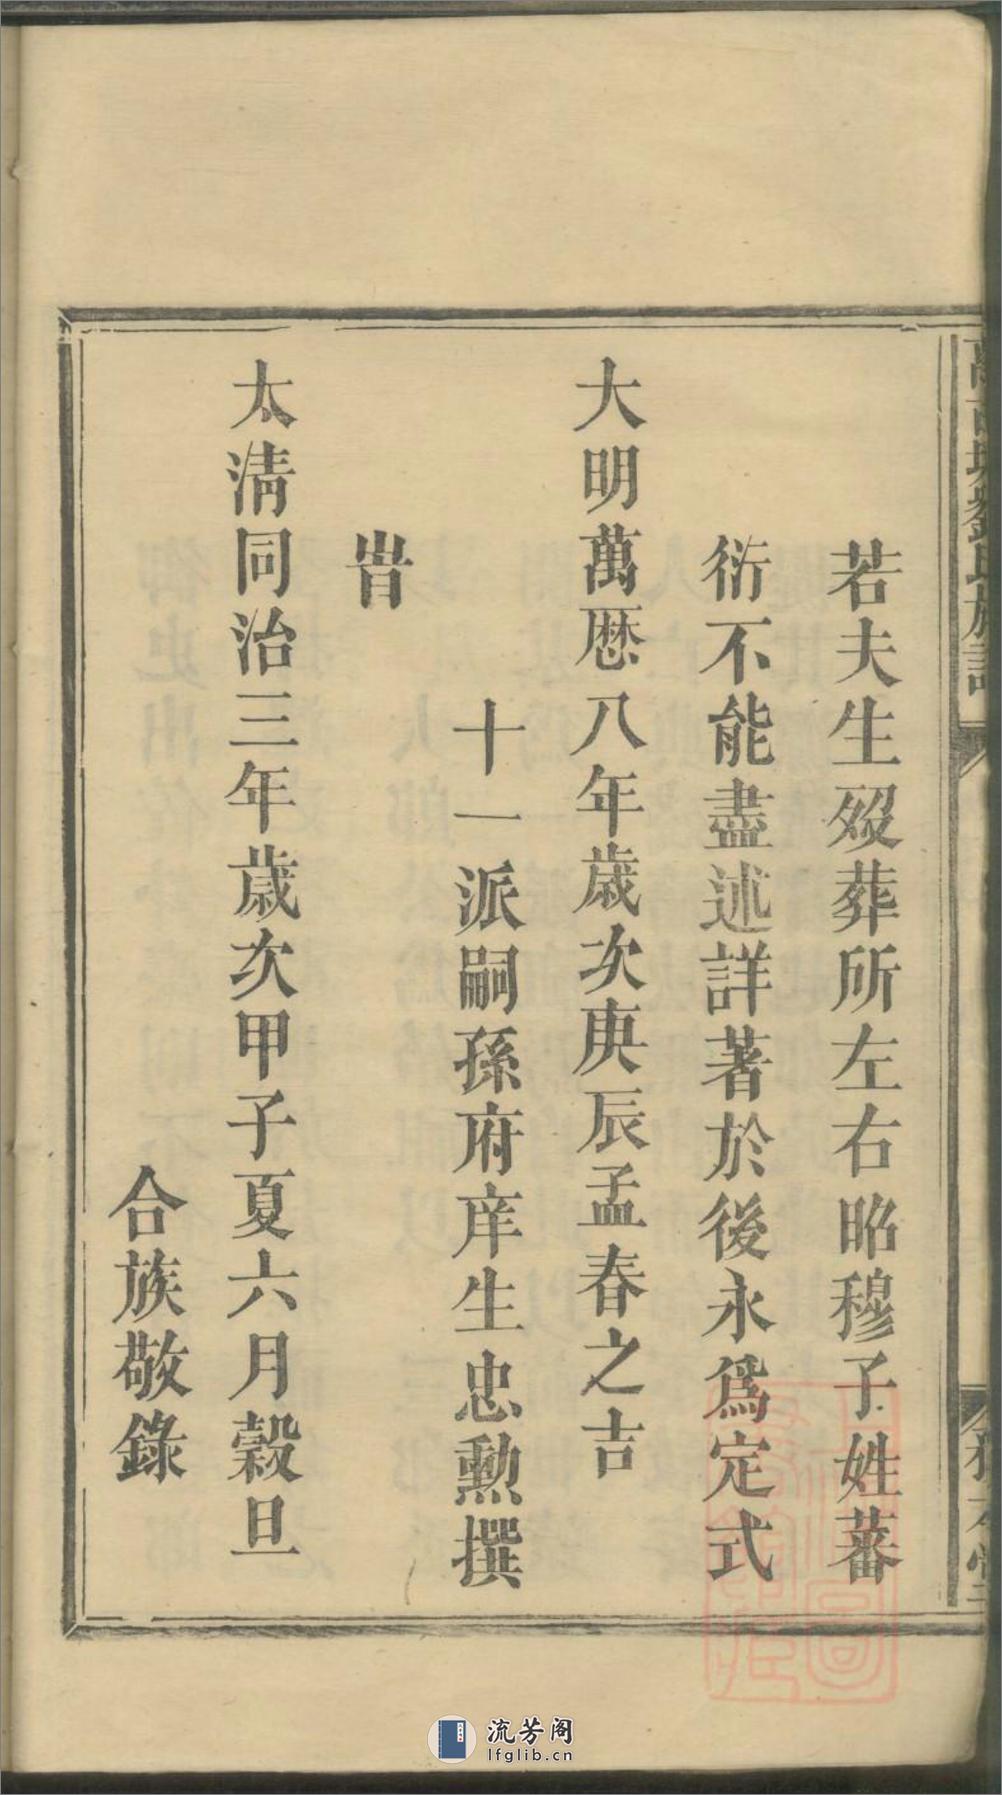 若夫生歿葬所左右昭穆子姓蕃
衍不能盡述詳著於後永爲定式
大明萬厯八年歲次庚辰孟春之吉
十一派嗣孫府庠生忠勳撰
旹
大清同治三年歲次甲子夏六月穀旦
合族敬錄
流芳阁
lfglib.cn